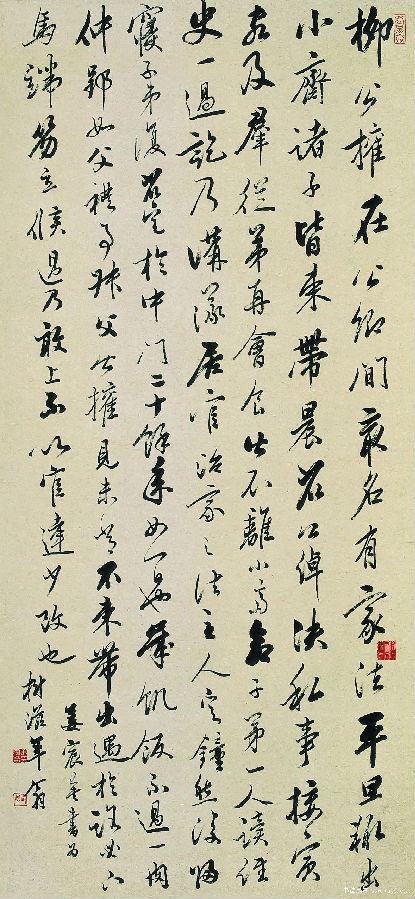 柳公權在公卿間最名有家法平旦輒出
小齋諸子皆束帶晨省公綽決私事接賓
客及羣從弟再會食皆不離小齋命子弟一人讀經
史一過訖乃講議居官治家之法至人定鐘然後歸
寢子弟復昏定於中門二十餘年如一日歲饑飯不過一肉
仲郢如父禮事叔父公權見未嘗不束帶出遇於路必下
馬端笏立候過乃敢上不以官達少改也
姜宸英書為
樹滋年翁